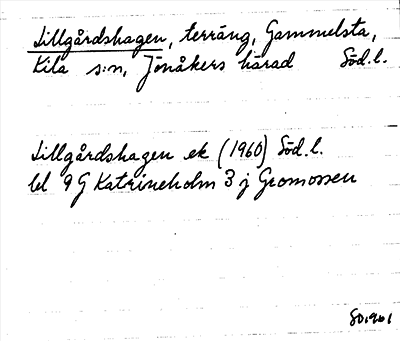 Lillgårdshagen, terräng, Gammelsta,
Kila s:n, Jönåkers härad Söd.l.
Lillgårdshagen ek (1960) Söd.l.
bl 9G Katrineholm 3 j Gromossen